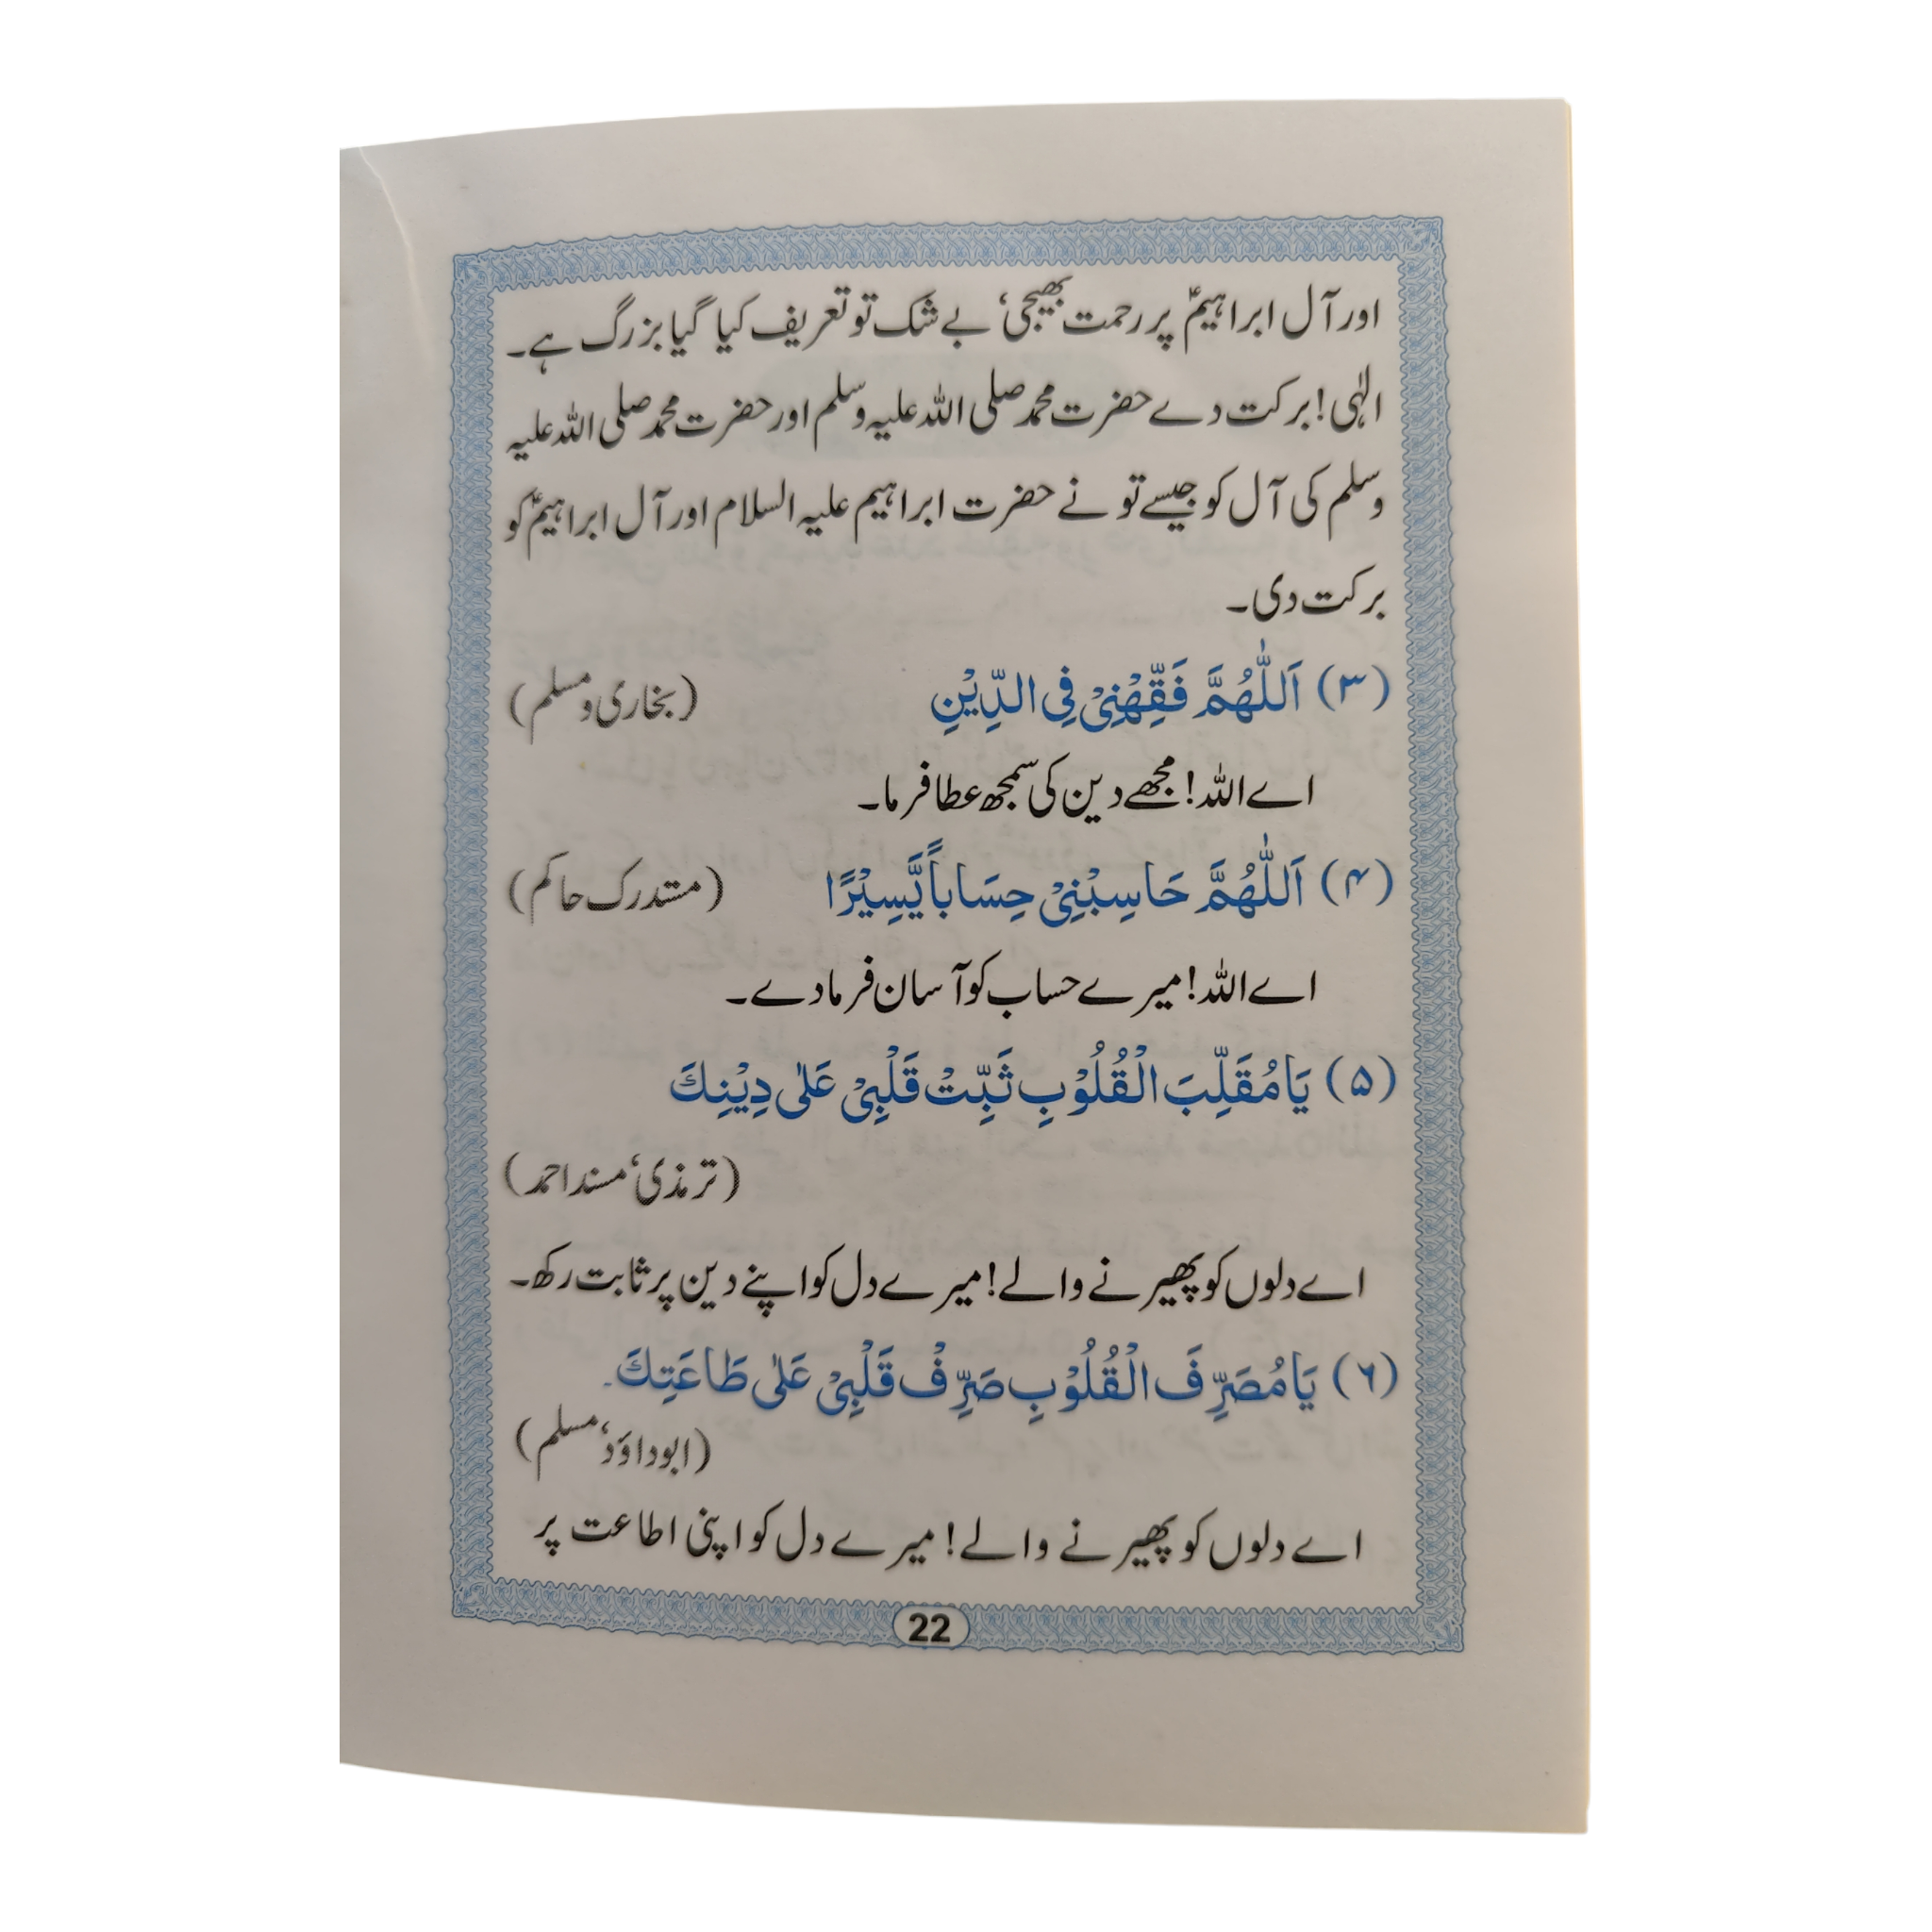 اور آل ابراہیمؑ پر رحمت بھیجی، بے شک تو تعریف کیا گیا بزرگ ہے۔
الٰہی! برکت دے حضرت محمد صلی اللہ علیہ وسلم اور حضرت محمد صلی اللہ علیہ
وسلم کی آل کو جیسے تو نے حضرت ابراہیم علیہ السلام اور آل ابراہیمؑ کو
برکت دی۔
(۳) اَللّٰهُمَّ فَقِّهْنِيْ فِي الدِّيْنِ (بخاری و مسلم)
اے اللہ! مجھے دین کی سمجھ عطا فرما۔
(۴) اَللّٰهُمَّ حَاسِبْنِيْ حِسَاباً يَّسِيْرًا (مستدرک حاکم)
اے اللہ! میرے حساب کو آسان فرما دے۔
(۵) يَا مُقَلِّبَ الْقُلُوْبِ ثَبِّتْ قَلْبِيْ عَلٰى دِيْنِكَ
(ترمذی، مسند احمد)
اے دلوں کو پھیرنے والے! میرے دل کو اپنے دین پر ثابت رکھ۔
(۶) يَا مُصَرِّفَ الْقُلُوْبِ صَرِّفْ قَلْبِيْ عَلٰى طَاعَتِكَ۔
(ابوداؤد، مسلم)
اے دلوں کو پھیرنے والے! میرے دل کو اپنی اطاعت پر
22